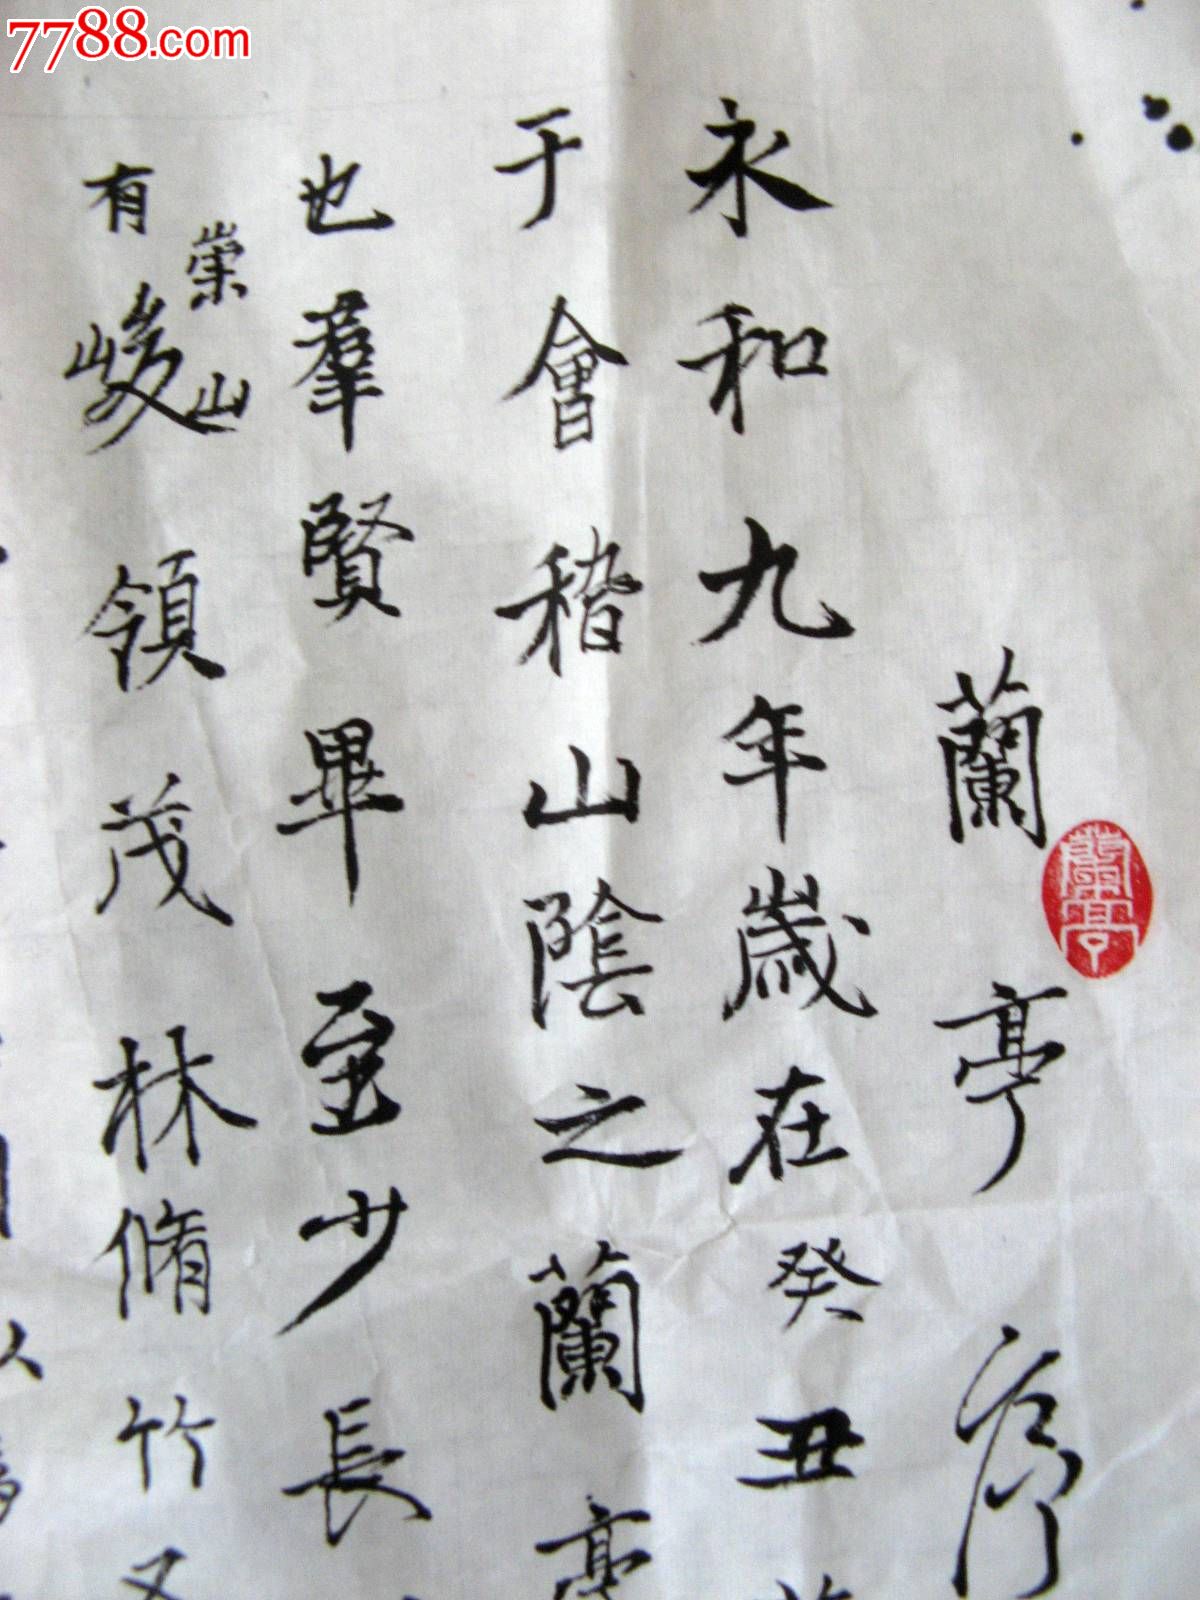 7788.com
蘭亭序
蘭亭
永和九年歲在癸丑
于會稽山陰之蘭亭
也羣賢畢至少長
崇山
有峻領茂林脩竹又